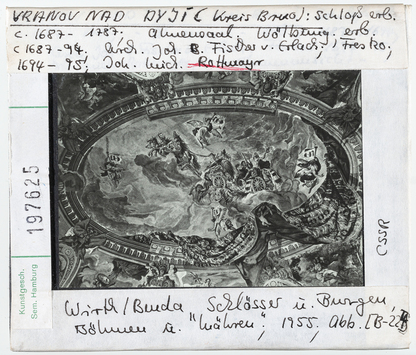 VRANOV NAD DYJÍ (Kreis Brno): Schloß erb.
c. 1687 - 1787. Ahnensaal Wölbung, erb.
c 1687-94. Arch. Joh. B. Fischer v. Erlach; Fresko,
1694-95, Joh. Mich. Rottmayr
197625
Kunstgesch.
Sem. Hamburg
CSSR
Wirth/Benda Schlösser u. Burgen,
Böhmen u. Mähren", 1955, Abb. [B-22